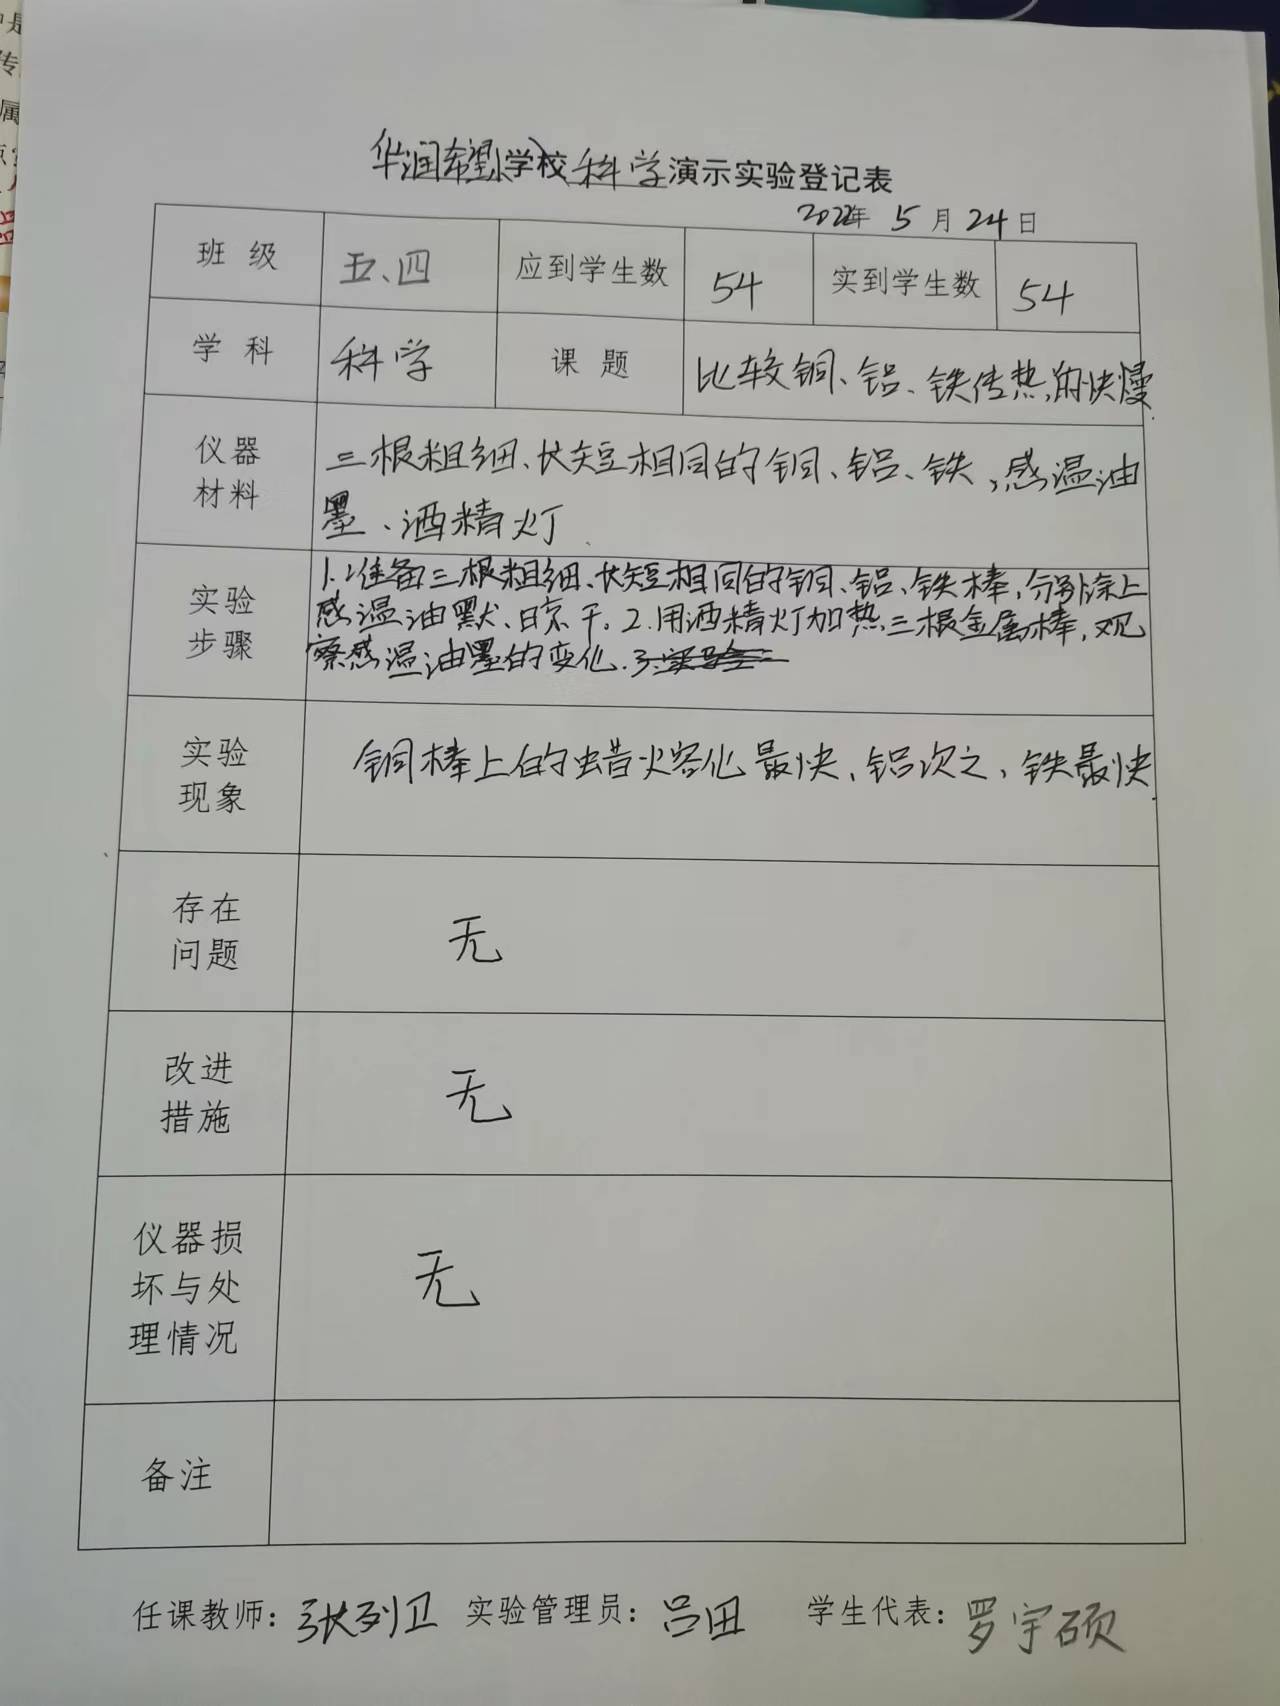 华润希望小学校科学演示实验登记表
2022年 5月24日
班级 五、四 应到学生数 54 实到学生数 54
学科 科学 课题 比较铜、铝、铁传热的快慢
仪器材料
三根粗细、长短相同的铜、铝、铁,感温油
墨、酒精灯
实验步骤
1.准备三根粗细、长短相同的铜、铝、铁棒,分别涂上
感温油默、晾干。2.用酒精灯加热三根金属棒,观
察感温油墨的变化.
实验现象
铜棒上的蜡火容化最快、铝次之,铁最快.
存在问题
无
改进措施
无
仪器损坏与处理情况
无
备注
任课教师:张列卫 实验管理员:吕田 学生代表:罗宇硕